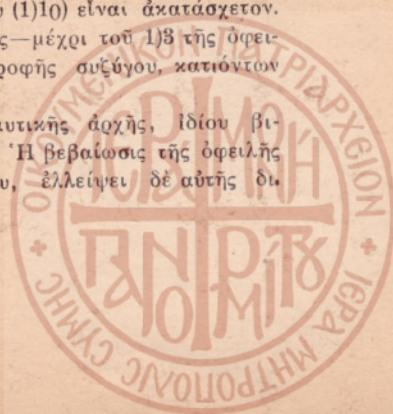 υ (1)10) εἶναι ἀκατάσχετον.
ς—μέχρι τοῦ 1)3 τῆς ὀφει-
ροφῆς συζύγου, κατιόντων
αυτικῆς ἀρχῆς, ἰδίου βι-
Ἡ βεβαίωσις τῆς ὀφειλῆς
υ, ἐλλείψει δὲ αὐτῆς δι.
ΟΙΚΟΥΜΕΝΙΚΟΝ ΠΑΤΡΙΑΡΧΕΙΟΝ
ΙΕΡΑ ΜΗΤΡΟΠΟΛΙΣ ΣΥΜΗΣ